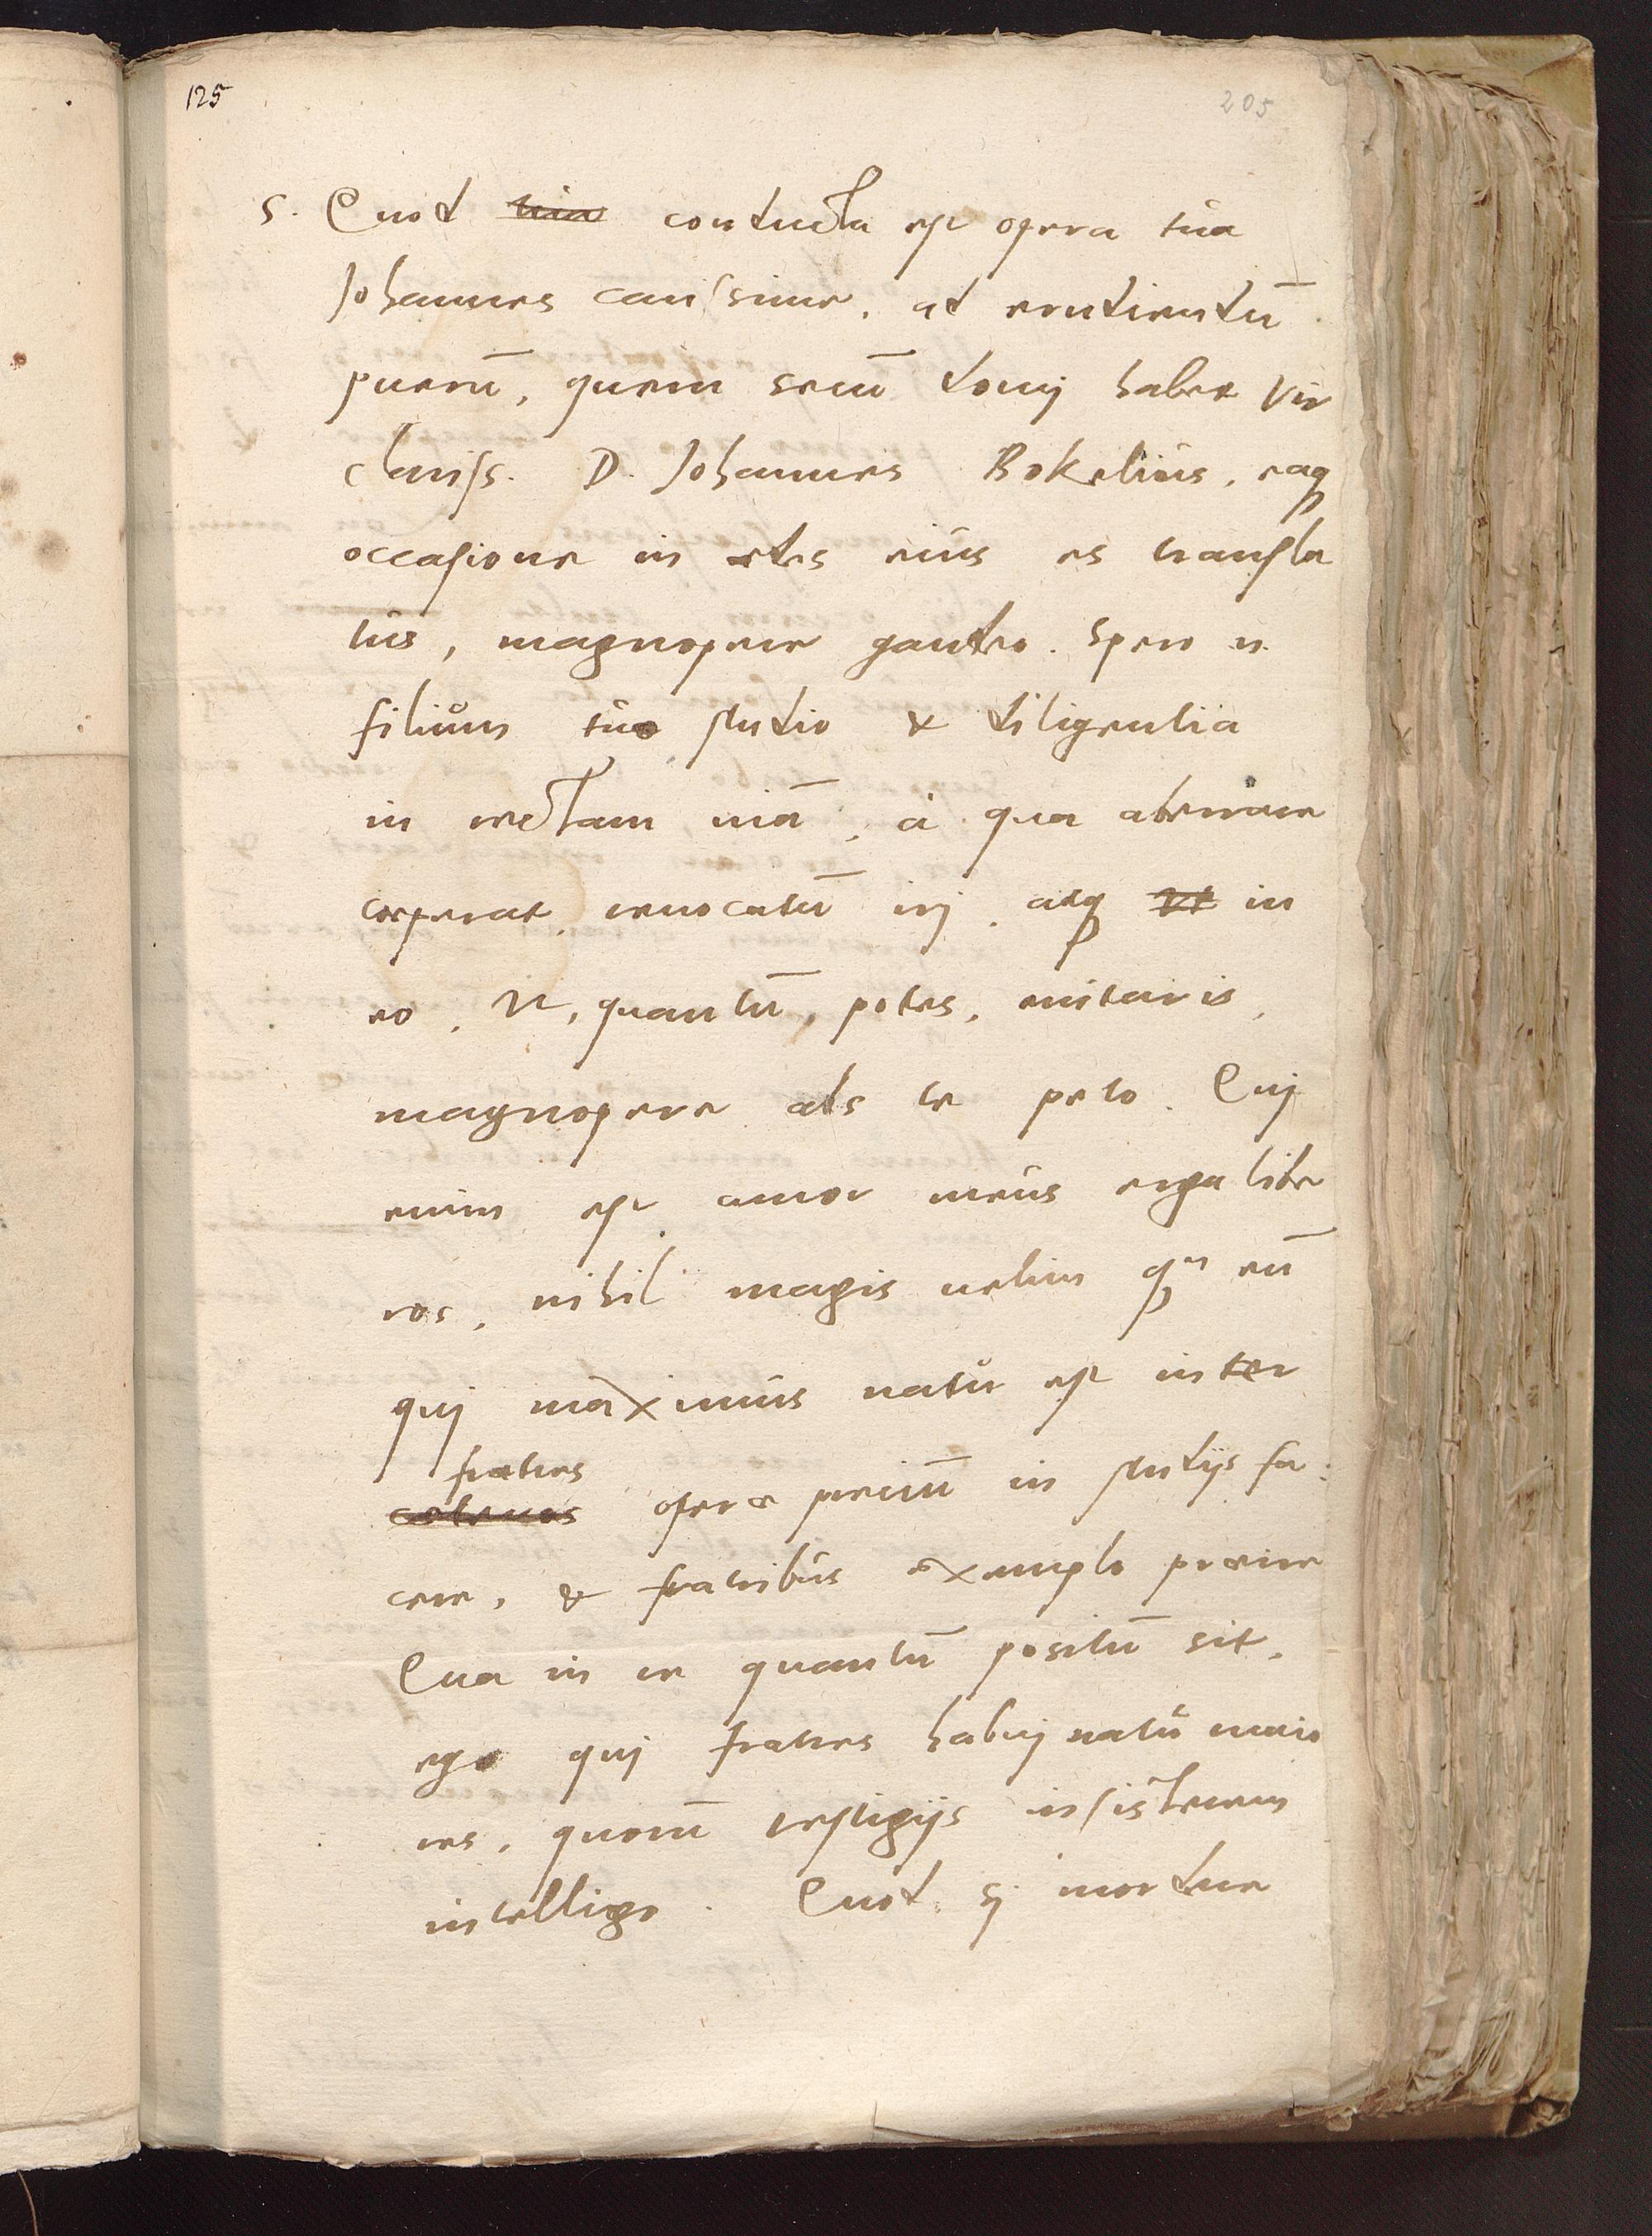 125
205
S. Quod tua conducta est opera tua
Johannes carissime, ad erudiendū
puerū, quem secū domj habet Vir
clariss. D. Johannes Bokelius, eaq
occasione in ædes eius es transla
tus, magnopere gaudeo. Spero n.
filium tuo studio & diligentia
in rectam uiā, à qua aberrare
coeperat, reuocatū irj, atq vt in
eo, vt, quantū, potes, enitaris,
magnopere abs te peto. Quj
enim est amor meus erga libe
ros, nihil magis uelim qm eū
quj maximus natu est inter
fratres
cæteros operæ precium in studijs fa:
cere, & fratribus exemplo præire
Qua in re quantū positū sit,
ego quj fratres habuj natu maio
res, quorū vestigijs insisterem
intelligo. Quod sj mordere